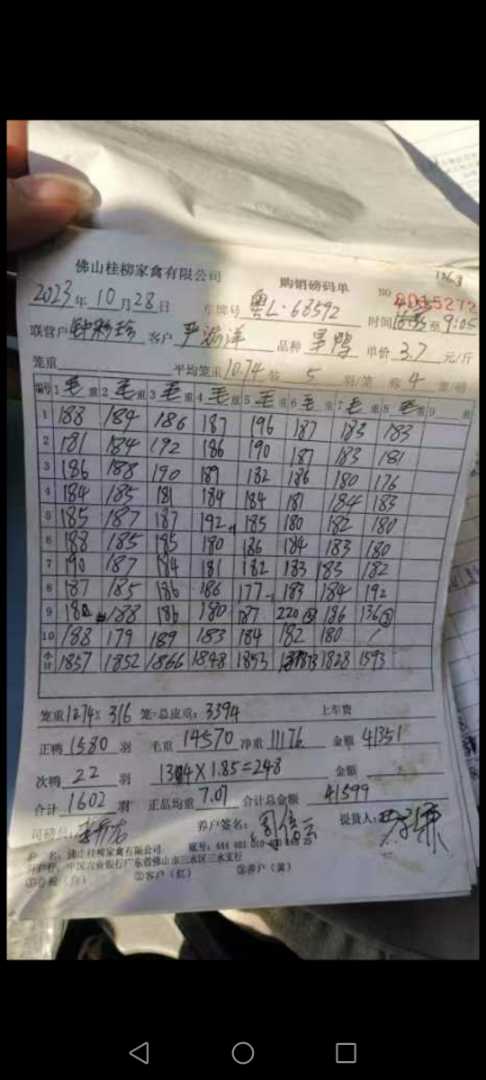 佛山桂柳家禽有限公司 购销磅码单
2023年10月28日 车牌号 粤L·63592 NO 8015272
联营户 客户 严海洋 品种 单价 3.7 元/斤 时间 至 9:05
笼重 平均笼重 10.74 装 5 羽/笼 称 4 笼/磅
编号 1 毛重 2 毛重 3 毛重 4 毛重 5 毛重 6 毛重 7 毛重 8 毛重 9 重
1 188 184 186 187 196 187 183 183
2 181 184 192 186 190 187 183 181
3 186 188 190 189 182 186 180 176
4 184 185 181 184 184 181 184 183
5 185 187 187 192 185 180 182 180
6 188 185 185 180 186 184 183 180
7 190 187 184 181 182 183 183 182
8 187 185 186 186 177 183 184 192
9 188 186 180 187 220 186 136
10 188 179 189 183 184 182 180 /
小计 1857 1852 1866 1848 1853 1873 1828 1593
笼重 316 笼=总皮重: 3394 上车费
正鸭 1580 羽 毛重 14570 净重 11176 金额 41351
次鸭 22 羽 134×1.85=248 金额
合计 1602 羽 正品均重 7.07 合计总金额 41599
司磅员: 养户签名: 提货人:
户 名: 佛山桂柳家禽有限公司 账号:
开户行: 中国农业银行广东省佛山市三水区三水支行
①存根(白) ②客户(红) ③养户(黄)